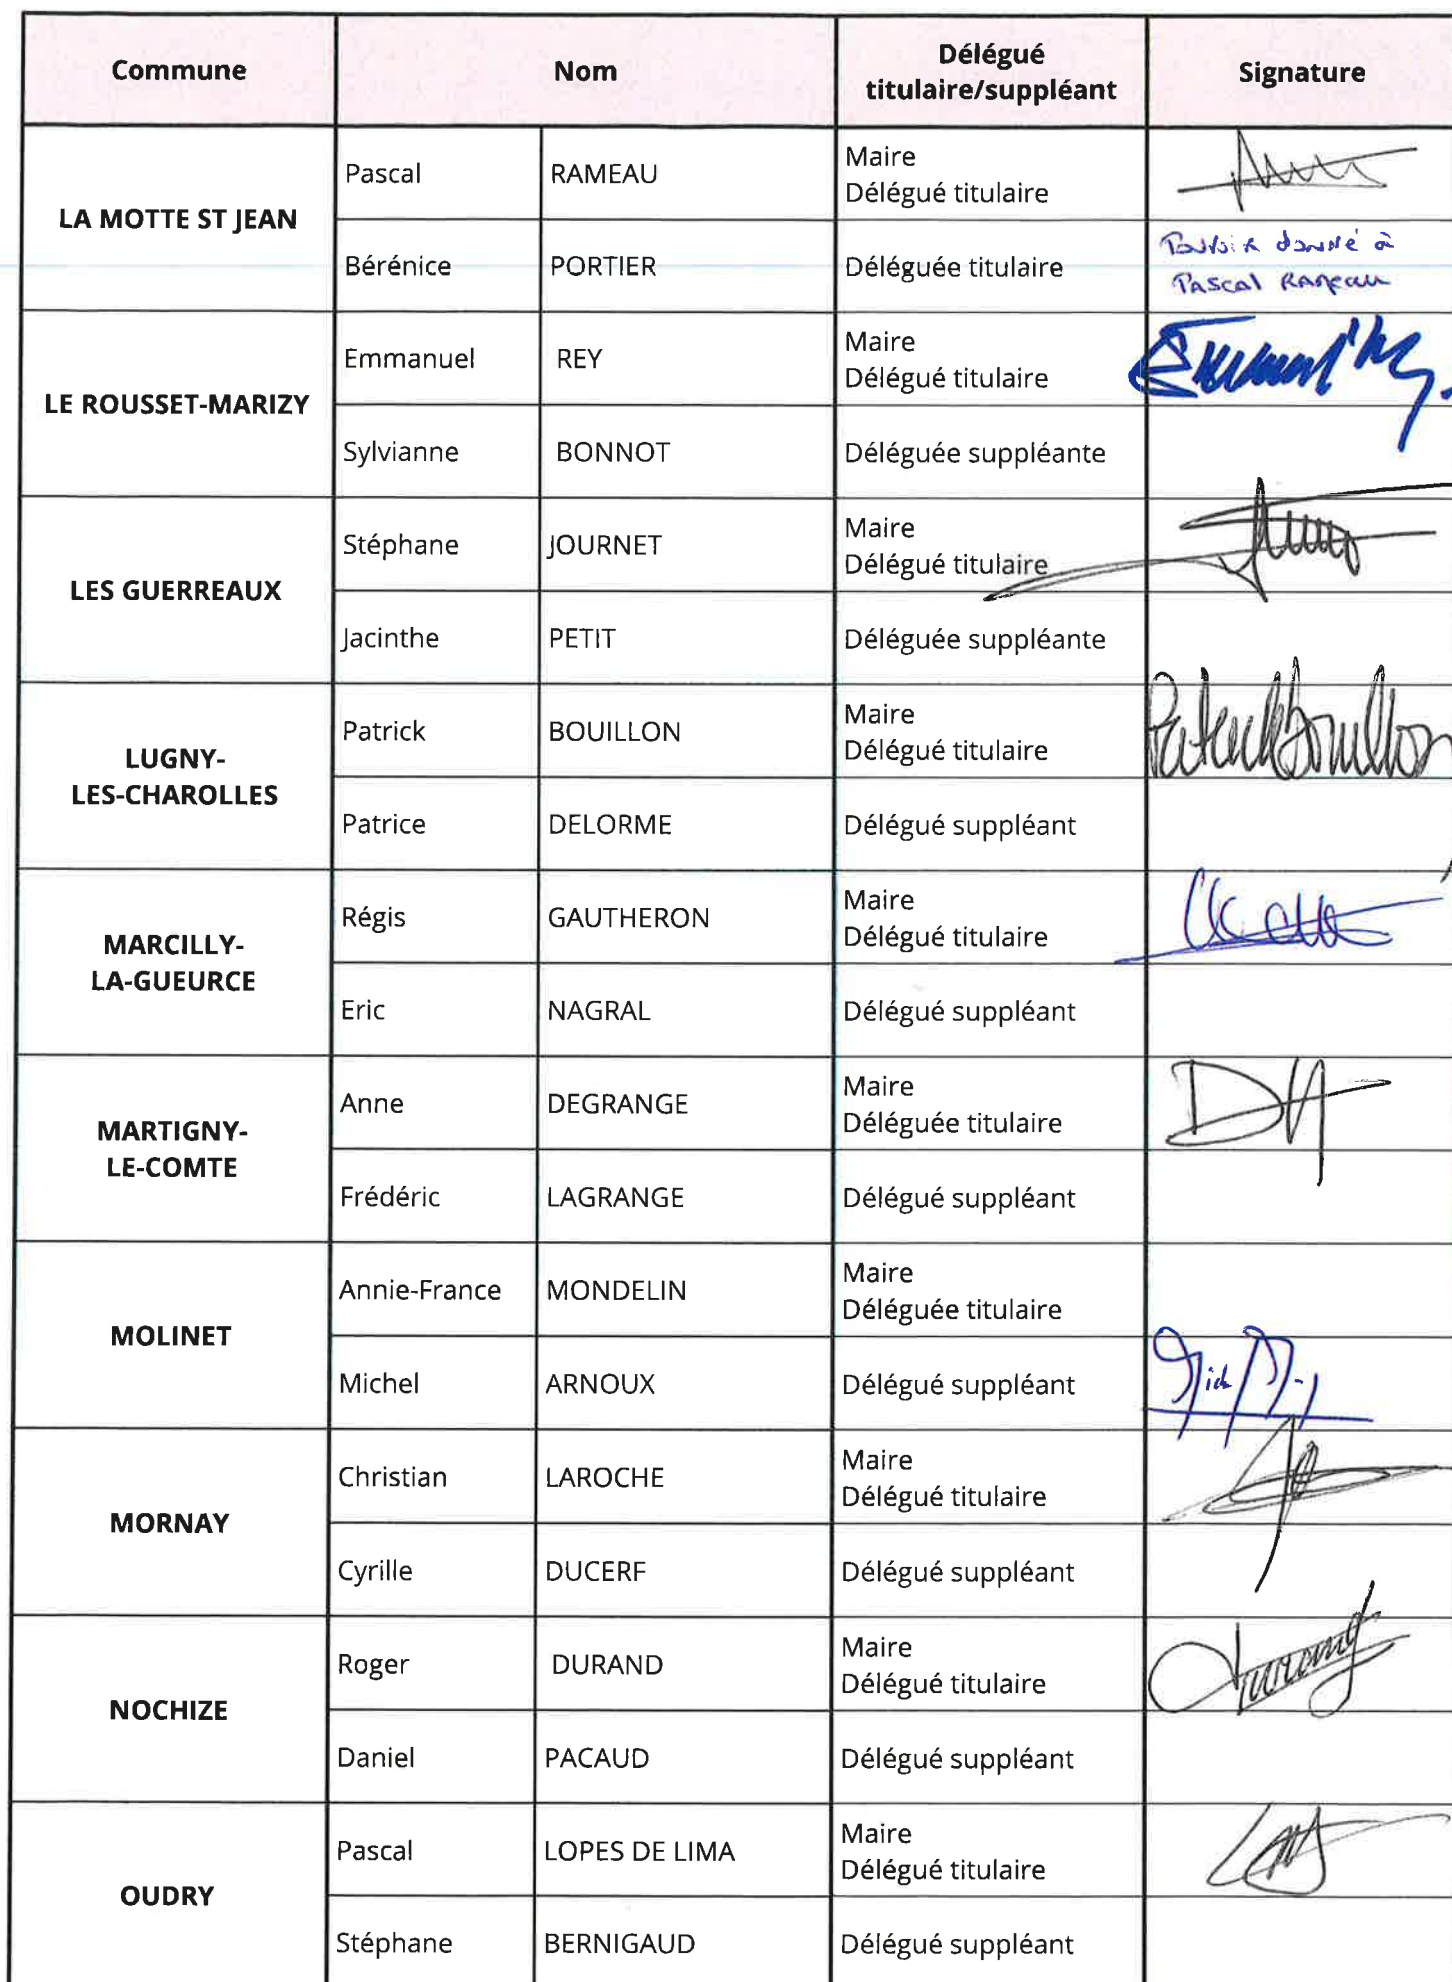 Commune Nom Délégué titulaire/suppléant Signature
LA MOTTE ST JEAN
Pascal RAMEAU Maire
Délégué titulaire
Bérénice PORTIER Déléguée titulaire Pouvoir donné à
Pascal Rameau
LE ROUSSET-MARIZY
Emmanuel REY Maire
Délégué titulaire
Sylvianne BONNOT Déléguée suppléante
LES GUERREAUX
Stéphane JOURNET Maire
Délégué titulaire
Jacinthe PETIT Déléguée suppléante
LUGNY-
LES-CHAROLLES
Patrick BOUILLON Maire
Délégué titulaire Patrick Bouillon
Patrice DELORME Délégué suppléant
MARCILLY-
LA-GUEURCE
Régis GAUTHERON Maire
Délégué titulaire
Eric NAGRAL Délégué suppléant
MARTIGNY-
LE-COMTE
Anne DEGRANGE Maire
Déléguée titulaire
Frédéric LAGRANGE Délégué suppléant
MOLINET
Annie-France MONDELIN Maire
Déléguée titulaire
Michel ARNOUX Délégué suppléant
MORNAY
Christian LAROCHE Maire
Délégué titulaire
Cyrille DUCERF Délégué suppléant
NOCHIZE
Roger DURAND Maire
Délégué titulaire
Daniel PACAUD Délégué suppléant
OUDRY
Pascal LOPES DE LIMA Maire
Délégué titulaire
Stéphane BERNIGAUD Délégué suppléant